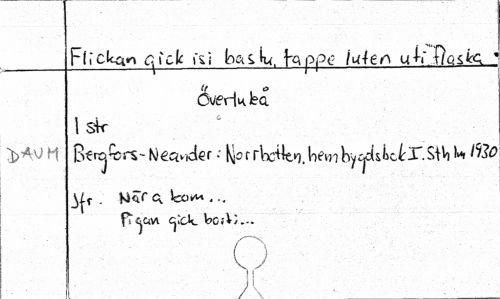 Flickan gick isi bastu, tappe luten uti flaska.
Överluleå
1 str
DAUM Bergfors-Neander: Norrbotten, hembygdsbok I. Sthlm 1930
Jfr. När a kom...
Pigan gick borti...